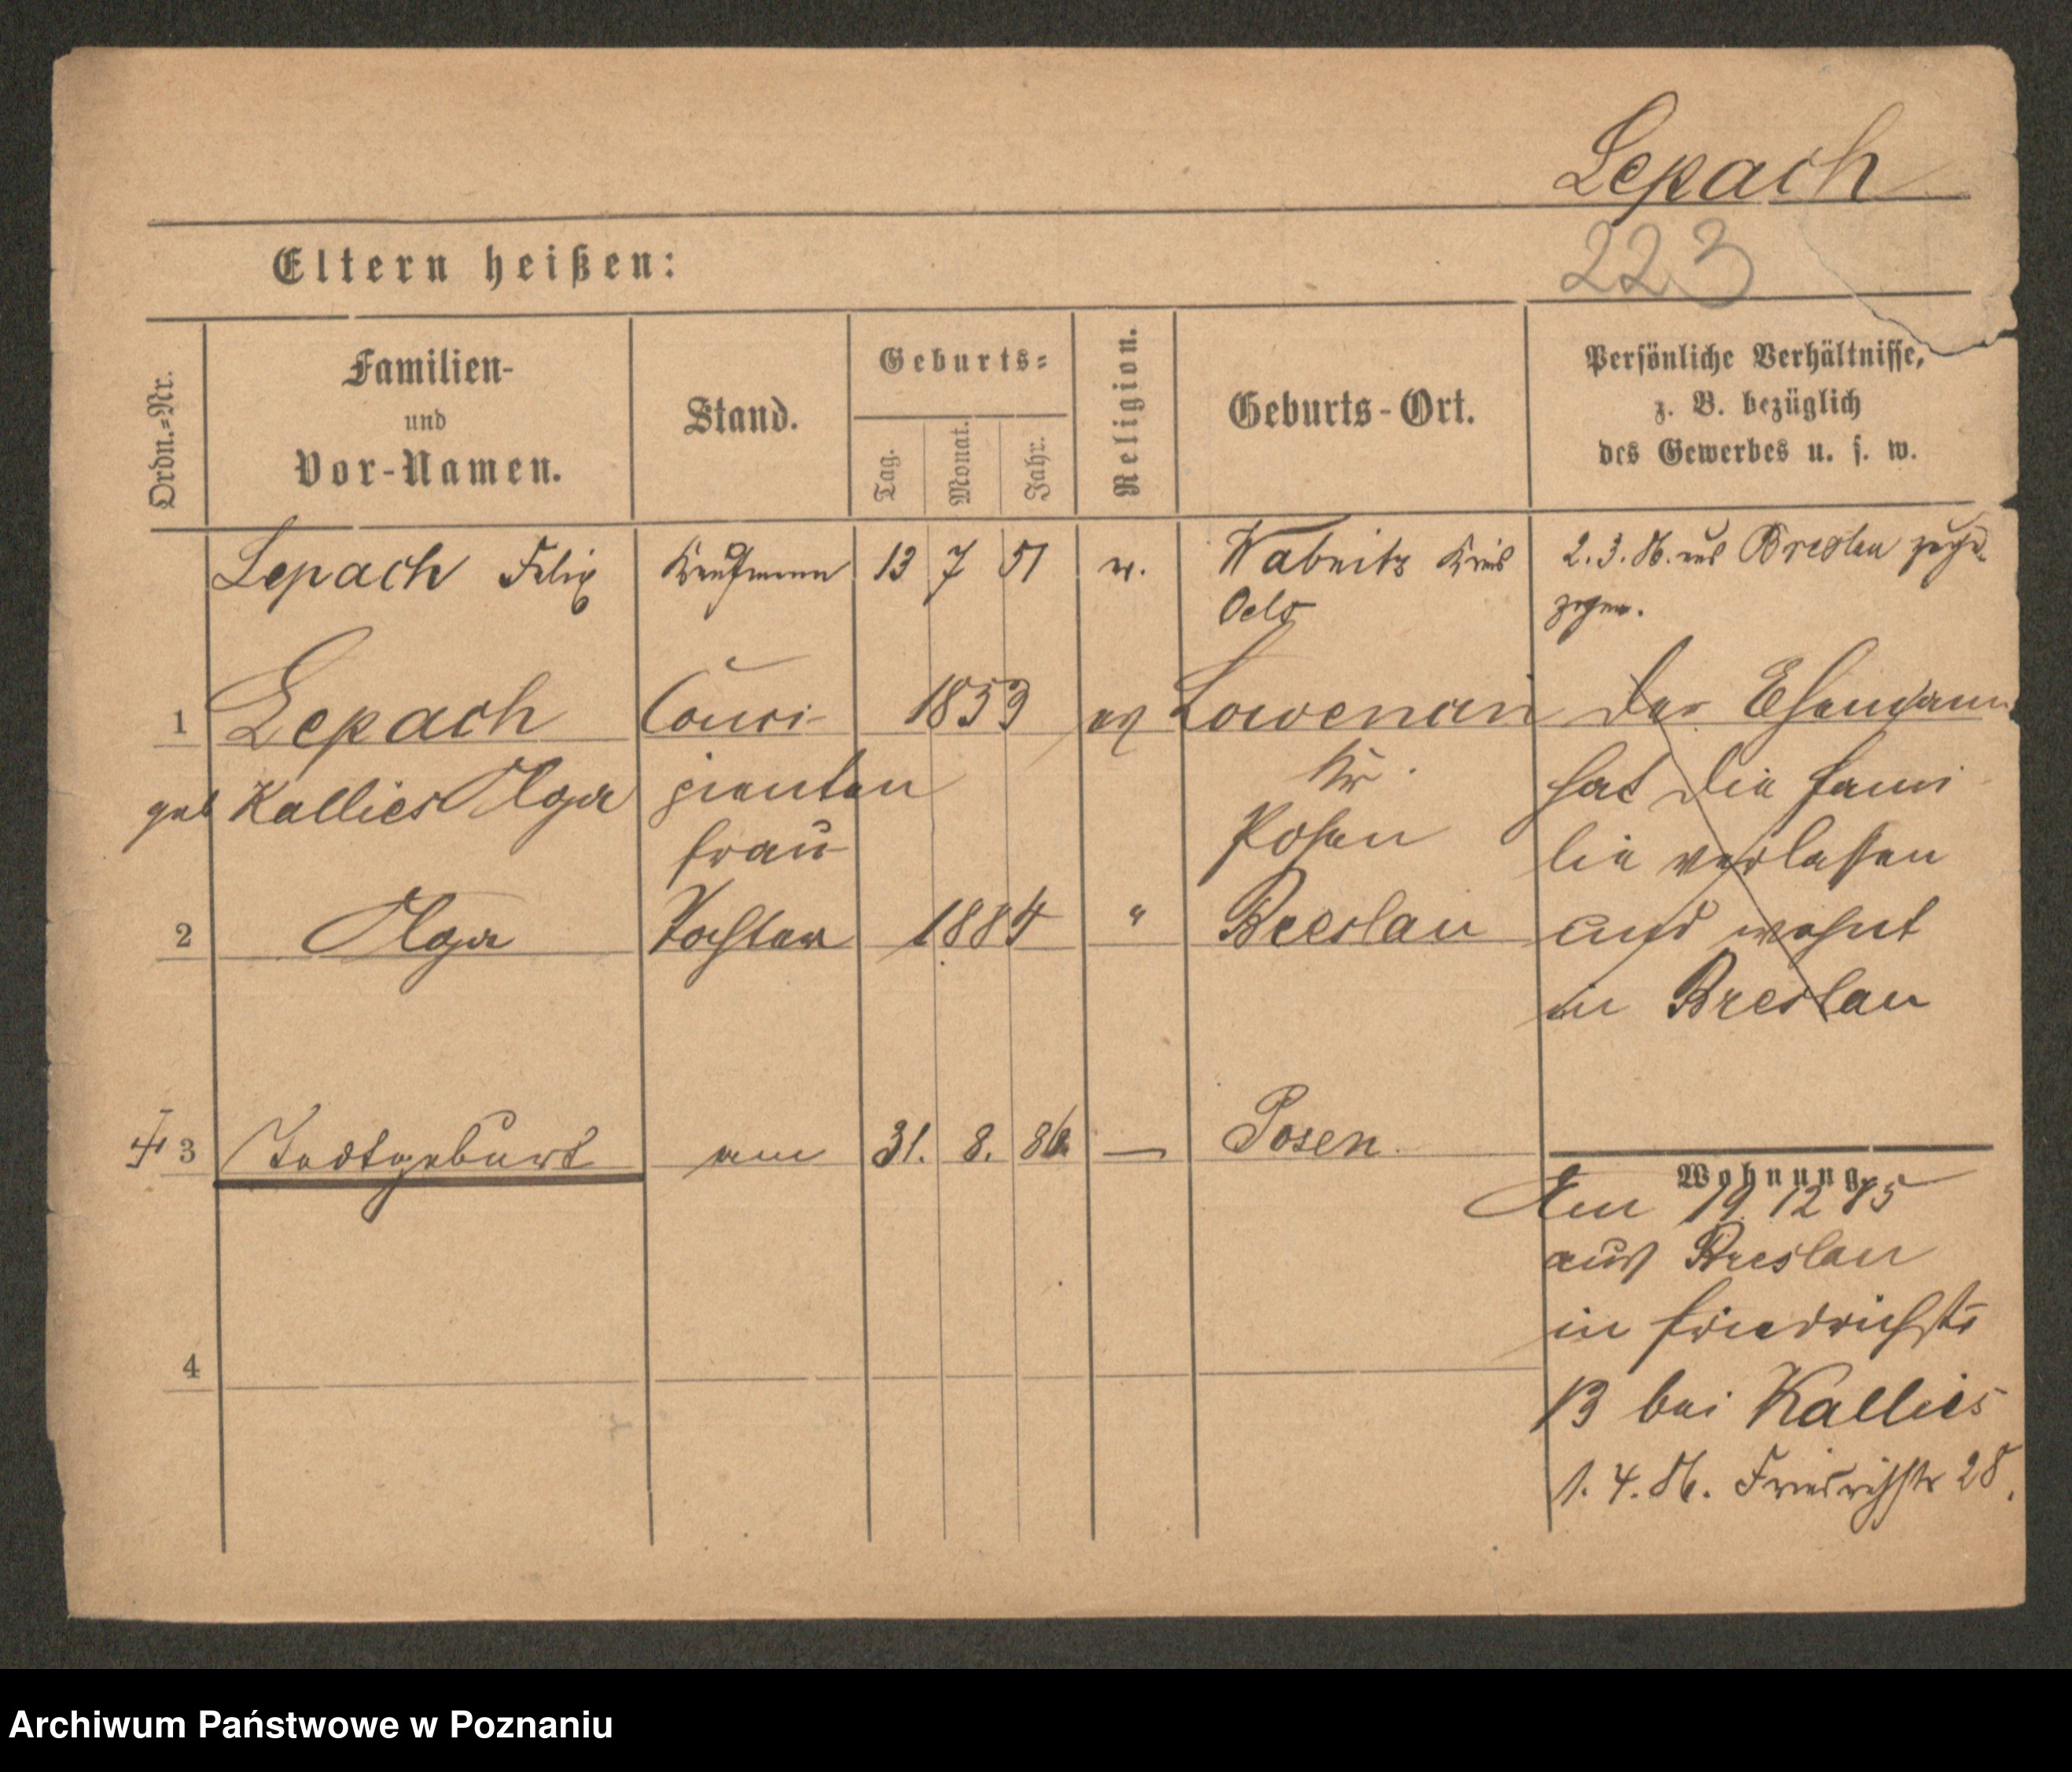 Lepach
223
Eltern heißen:
Ordn.=Nr.
Familien-
und
Vor-Namen.
Stand.
Geburts=
Tag.
Monat.
Jahr.
Religion.
Geburts-Ort.
Persönliche Verhältnisse,
z. B. bezüglich
des Gewerbes u. s. w.
Lepach Felix Kaufmann 13 7 51 Wabnitz Kreis 2.3.86. aus Breslau zuge-
Oels zogen.
1 Lepach Comi- 1853 ev Der Ehemann
geb Kallies Olga Kr. hat die Fami
frau Posen lie verlassen
2 Olga Tochter 1884 " Breslau und wohnt
in Breslau
3 Todtgeburt am 31. 8. 86. — Posen
Wohnung.
Am 19 12 85
aus Breslau
in Friedrichstr
13 bei Kallies
4
1.4.86. Friedrichstr 28.
Archiwum Państwowe w Poznaniu